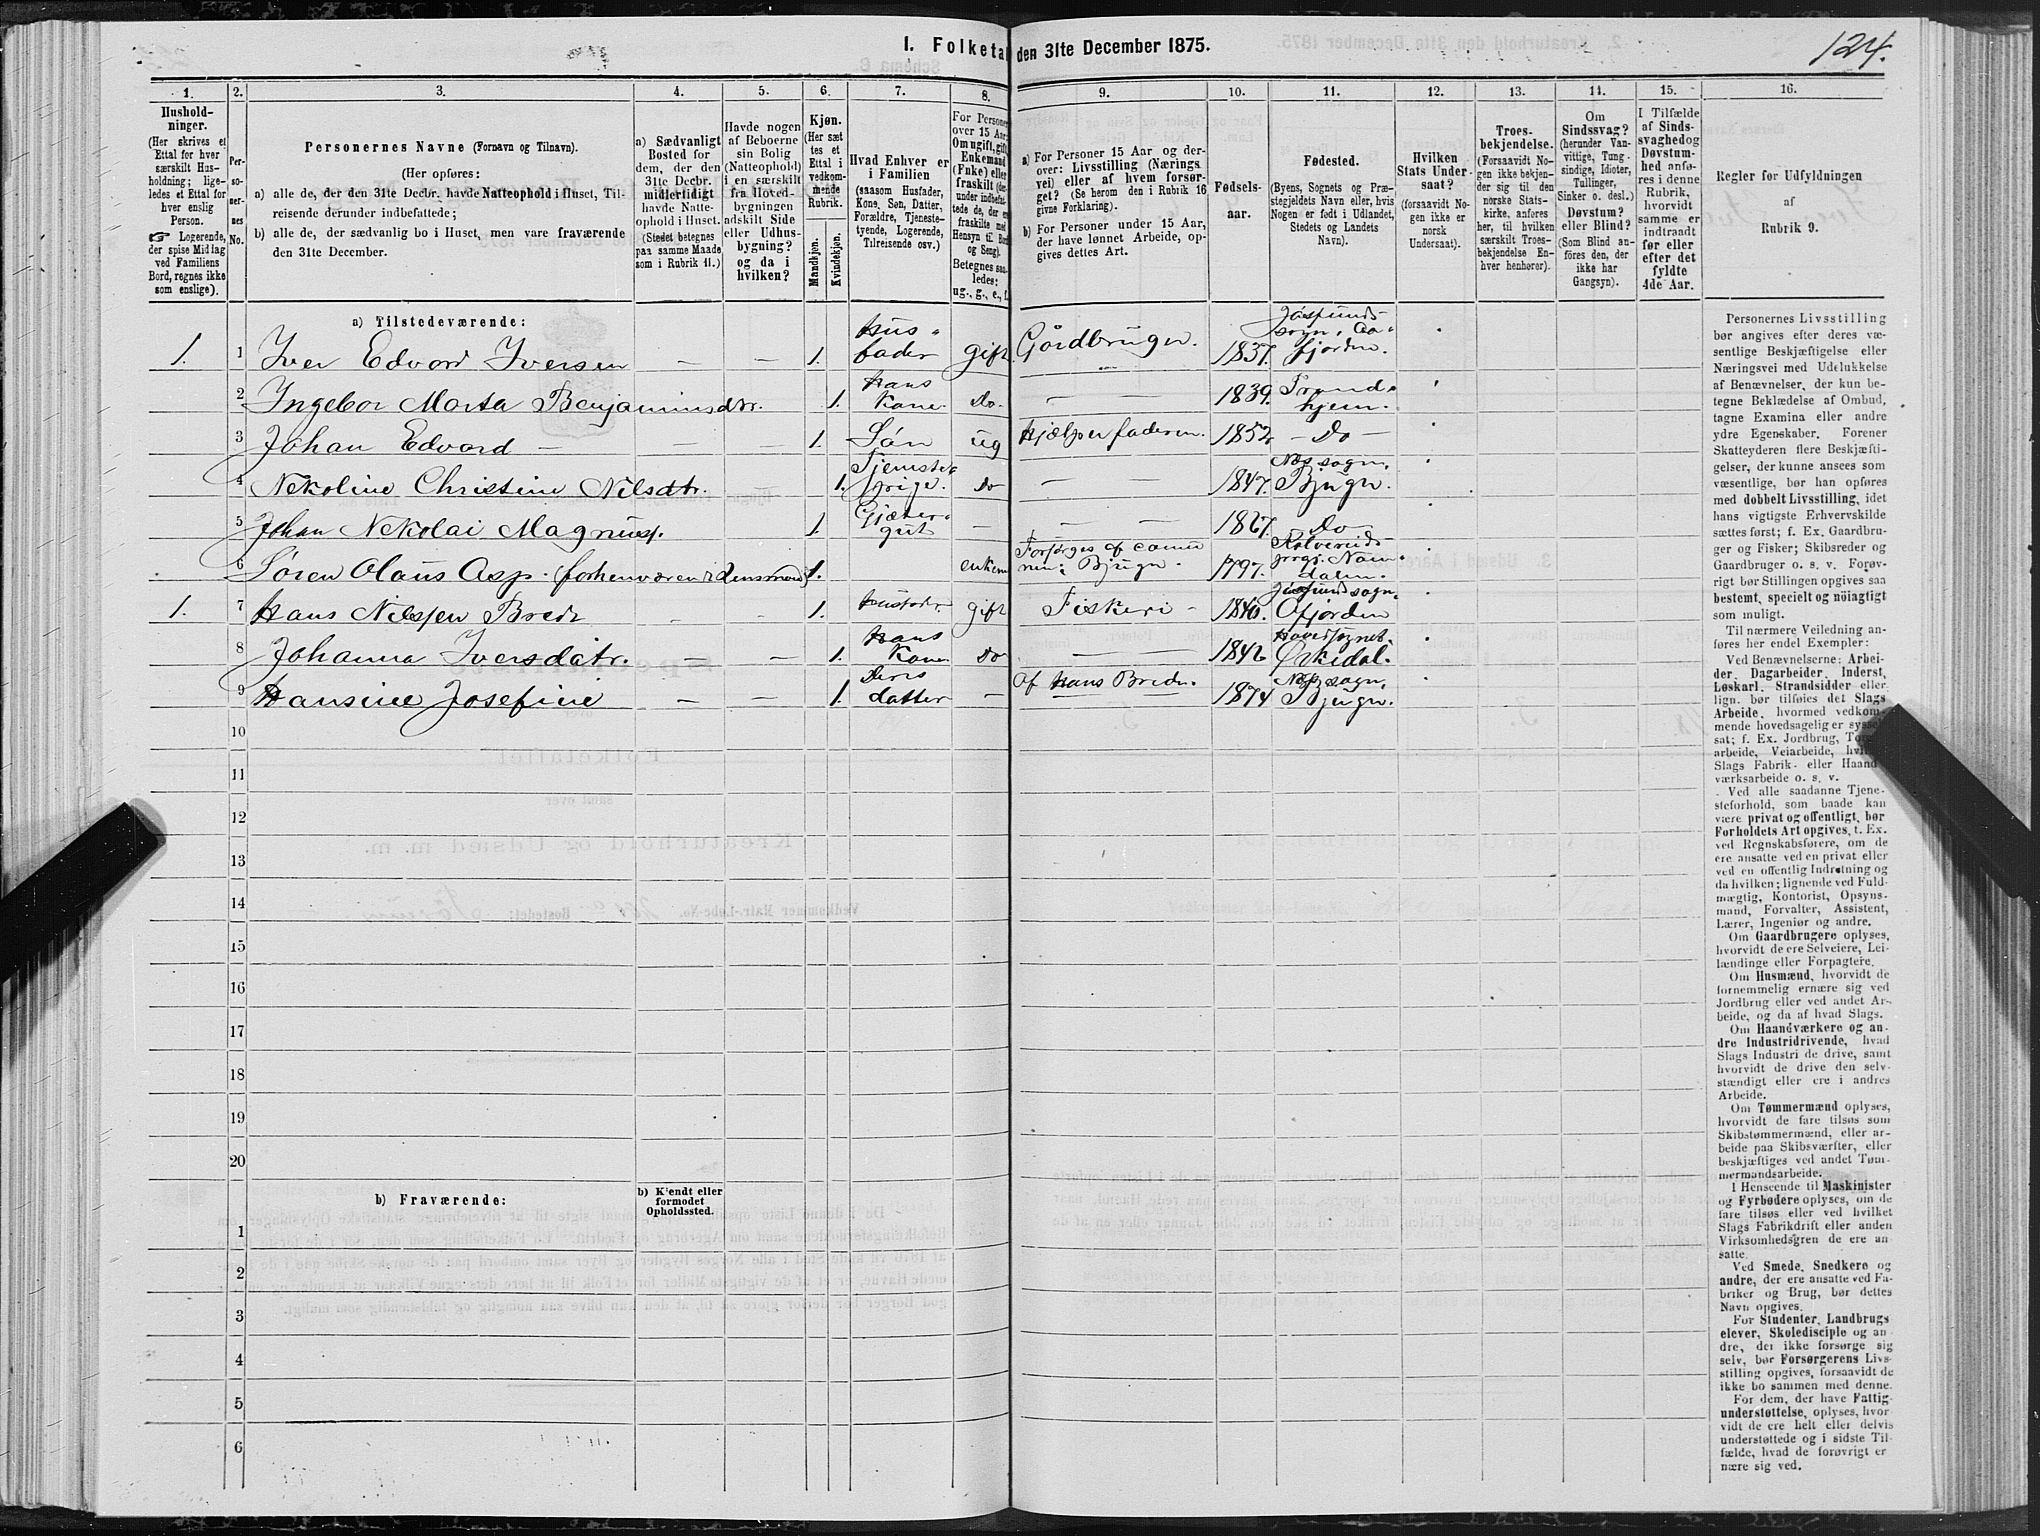 I. Folketal den 31te December 1875.
124.
1.
Hushold-
ninger.
(Her skrives et
Ettal for hver
særskilt Hus-
holdning; lige-
ledes et Ettal for
hver enslig
Person.
☞ Logerende,
der spise Middag
ved Familiens
Bord, regnes ikke
som enslige).
2.
Per-
so-
ner-
nes
No.
3.
Personernes Navne (Fornavn og Tilnavn).
(Her opføres:
a) alle de, der den 31te Decbr. havde Natteophold i Huset, Til-
reisende derunder indbefattede;
b) alle de, der sædvanlig bo i Huset, men vare fraværende
den 31te December.
4.
a) Sædvanligt
Bosted for
dem, der den
31te Decbr.
midlertidigt
havde Natte-
ophold i Huset.
(Stedet betegnes
paa samme Maade
som i Rubrik 11.)
5.
Havde nogen
af Beboerne
sin Bolig
(Natteophold)
i en særskilt
fra Hoved-
bygningen
adskilt Side
eller Udhus-
bygning?
og da i
hvilken?
6.
Kjøn.
(Her sæt-
tes et
Ettal i
vedkom-
mende
Rubrik.
Mandkjøn.
Kvindekjøn.
7.
Hvad Enhver er
i Familien
(saasom Husfader,
Kone, Søn, Datter,
Forældre, Tjeneste-
tyende, Logerende,
Tilreisende osv.)
8.
For Personer
over 15 Aar:
Om ugift, gift,
Enkemand
(Enke) eller
fraskilt (der-
under indbefat-
tede de, der ere
fraskilte med
Hensyn til Bord
og Seng).
Betegnes saa-
ledes:
ug., g., e., f.
9.
a) For Personer 15 Aar og der-
over: Livsstilling (Nærings-
vei) eller af hvem forsør-
get? (Se herom den i Rubrik 16
givne Forklaring).
b) For Personer under 15 Aar,
der have lønnet Arbeide, op-
gives dettes Art.
10.
Fødsels-
aar.
11.
Fødested.
(Byens, Sognets og Præ-
stegjeldets Navn eller, hvis
Nogen er født i Udlandet,
Stedets og Landets
Navn).
12.
Hvilken
Stats Under-
saat?
(forsaavidt No-
gen ikke er
norsk
Undersaat).
13.
Troes-
bekjendelse.
(Forsaavidt No-
gen ikke bekjen-
der sig til den
norske Stats-
kirke, anføres
her, til hvilken
særskilt Troes-
bekjendelse En-
hver henhører).
14.
Om
Sindssvag?
(herunder Van-
vittige, Tung-
sindige, Idioter,
Tullinger,
Sinker o. desl.)
Døvstum?
eller Blind?
(Som Blind an-
føres den, der
ikke har
Gangsyn).
15.
I Tilfælde
af Sinds-
svaghed og
Døvstum-
hed anfø-
res i denne
Rubrik,
hvorvidt
samme er
indtraadt
før eller
efter det
fyldte
4de Aar.
16.
Regler for Udfyldningen
af
Rubrik 9.
a) Tilstedeværende:
1. 1 Iver Edvard Iversen — — 1. Hus-fader gift Gårdbruger. 1837. Jøssunds sogn, Aa-fjorden.
2 Ingebor Marta Benjaminsdtr. 1. Hans Kone. Do. — — 1839. Trond-hjem.
3 Johan Edvard — — — 1. Søn ug Hjælper faderen. 1852 — Do —
4 Nekoline Christine Nilsdtr. 1. Tjeneste-pige. Do — — 1847. Næs sogn, Bjugn.
5 Johan Nekolai Magnusp. 1. Gjæter-gut — — — 1867. Do —
6 Søren Olaus Asp. (forhenværende Lensmand) 1. enkem Forsørges af Commu nen i Bjugn. 1797. Kolvereids prgj. Nam-dalen.
1. 7 Hans Nilssen Bredr — — 1. Husfader gift Fiskeri — 1840. Jøssund sogn, Afjorden
8 Johanna Iversdatr. — — 1. Hans Kone Do — — 1842 Hovedsognet. Ørkedal.
9 Hansine Josefine — — 1. Deres datter — Af Hans Bredr. 1874 Næs sogn, Bjugn.
10
11
12
13
14
15
16
17
18
19
20
b) Fraværende:
b) Kjendt eller
formodet
Opholdssted.
1
2
3
4
5
6
Personernes Livsstilling
bør angives efter deres væ-
sentlige Beskjæftigelse eller
Næringsvei med Udelukkelse
af Benævnelser, der kun be-
tegne Beklædelse af Ombud,
tagne Examina eller andre
ydre Egenskaber. Forener
Skatteyderen flere Beskjæfti-
gelser, der kunne ansees som
væsentlige, bør han opføres
med dobbelt Livsstilling, idet
hans vigtigste Erhvervskilde
sættes først; f. Ex. Gaardbru-
ger og Fisker; Skibsreder og
Gaardbruger o. s. v. Forøv-
rigt bør Stillingen opgives saa
bestemt, specielt og nöiagtigt
som muligt.
Til nærmere Veiledning an-
føres her endel Exempler:
Ved Benævnelserne: Arbei-
der, Dagarbeider, Inderst,
Løskarl, Strandsidder eller
lign. bør tilføies det Slags
Arbeide, hvormed vedkom-
mende hovedsagelig er syssel-
sat; f. Ex. Jordbrug, Tomt-
arbeide, Veiarbeide, hvilket
Slags Fabrik- eller Haand-
værksarbeide o. s. v.
Ved alle saadanne Tjene-
steforhold, som baade kan
være privat og offentligt, bør
Forholdets Art opgives, t. Ex.
ved Regnskabsførere, om de
ere ansatte ved en privat eller
ved en offentlig Indretning og
da hvilken; lignende ved Fuld-
mægtig, Kontorist, Opsyns-
mand, Forvalter, Assistent,
Lærer, Ingeniør og andre.
Om Gaardbrugere oplyses,
hvorvidt de ere Selveiere, Lei-
lændinge eller Forpagtere.
Om Husmænd, hvorvidt de
fornemmelig ernære sig ved
Jordbrug eller ved andet Ar-
beide, og da af hvad Slags.
Om Haandværkere og an-
dre Industridrivende, hvad
Slags Industri de drive, samt
hvorvidt de drive den selv-
stændigt eller ere i andres
Arbeide.
Om Tømmermænd oplyses,
hvorvidt de fare tilsøs som
Skibstømmermænd, eller ar-
beide paa Skibsværfter, eller
beskjæftiges ved andet Tøm-
mermandsarbeide.
I Henseende til Maskinister
og Fyrbødere oplyses, om de
fare tilsøs eller ved hvilket
Slags Fabrikdrift eller anden
Virksomhedsgren de ere an-
satte.
Ved Smede, Snedkere og
andre, der ere ansatte ved Fa-
briker og Brug, bør dettes
Navn opgives.
For Studenter, Landbrugs
elever, Skoledisciple og an-
dre, der ikke forsørge sig
selv, bør Forsørgerens Livs-
stilling opgives, forsaavidt de
ikke bo sammen med denne.
For dem, der have Fattig-
understøttelse, oplyses, hvor
vidt de ere helt eller delvis
understøttede og i sidste Til-
fælde, hvad de forøvrigt er
nære sig ved.